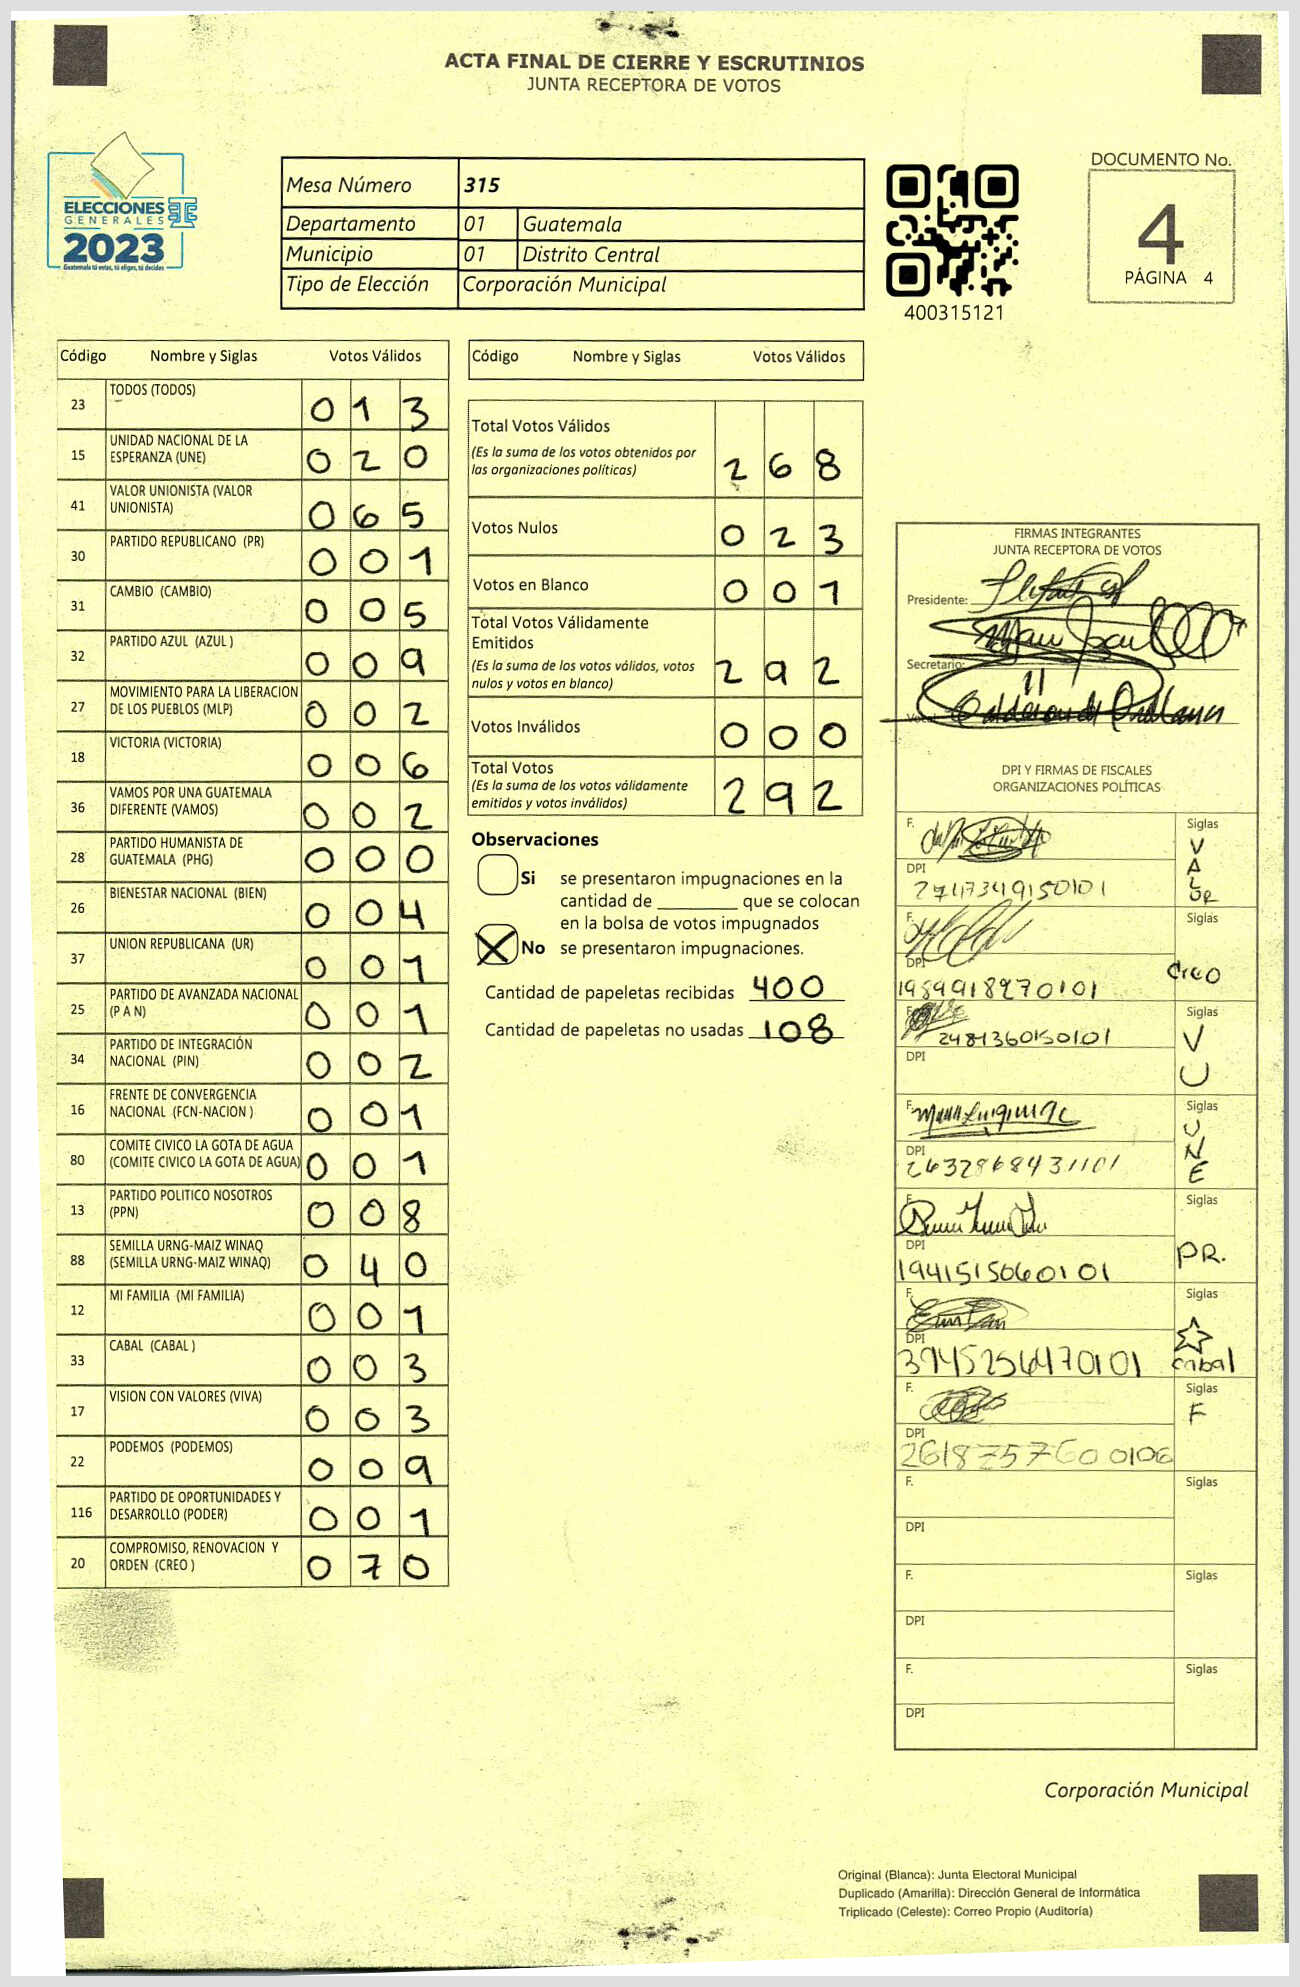 ACTA FINAL DE CIERRE Y ESCRUTINIOS
JUNTA RECEPTORA DE VOTOS
ELECCIONES
GENERALES
2023
Guatemala tú votas, tú eliges, tú decides
Mesa Número 315
Departamento 01 Guatemala
Municipio 01 Distrito Central
Tipo de Elección Corporación Municipal
400315121
DOCUMENTO No.
4
PÁGINA 4
Código Nombre y Siglas Votos Válidos
23 TODOS (TODOS) 0 1 3
15 UNIDAD NACIONAL DE LA
ESPERANZA (UNE) 0 2 0
41 VALOR UNIONISTA (VALOR
UNIONISTA) 0 6 5
30 PARTIDO REPUBLICANO (PR) 0 0 1
31 CAMBIO (CAMBIO) 0 0 5
32 PARTIDO AZUL (AZUL ) 0 0 9
27 MOVIMIENTO PARA LA LIBERACION
DE LOS PUEBLOS (MLP) 0 0 2
18 VICTORIA (VICTORIA) 0 0 6
36 VAMOS POR UNA GUATEMALA
DIFERENTE (VAMOS) 0 0 2
28 PARTIDO HUMANISTA DE
GUATEMALA (PHG) 0 0 0
26 BIENESTAR NACIONAL (BIEN) 0 0 4
37 UNION REPUBLICANA (UR) 0 0 1
25 PARTIDO DE AVANZADA NACIONAL
(P A N) 0 0 1
34 PARTIDO DE INTEGRACIÓN
NACIONAL (PIN) 0 0 2
16 FRENTE DE CONVERGENCIA
NACIONAL (FCN-NACION ) 0 0 1
80 COMITE CIVICO LA GOTA DE AGUA
(COMITE CIVICO LA GOTA DE AGUA) 0 0 1
13 PARTIDO POLITICO NOSOTROS
(PPN) 0 0 8
88 SEMILLA URNG-MAIZ WINAQ
(SEMILLA URNG-MAIZ WINAQ) 0 4 0
12 MI FAMILIA (MI FAMILIA) 0 0 1
33 CABAL (CABAL ) 0 0 3
17 VISION CON VALORES (VIVA) 0 0 3
22 PODEMOS (PODEMOS) 0 0 9
116 PARTIDO DE OPORTUNIDADES Y
DESARROLLO (PODER) 0 0 1
20 COMPROMISO, RENOVACION Y
ORDEN (CREO ) 0 7 0
Código Nombre y Siglas Votos Válidos
Total Votos Válidos
(Es la suma de los votos obtenidos por
las organizaciones políticas) 2 6 8
Votos Nulos 0 2 3
Votos en Blanco 0 0 1
Total Votos Válidamente
Emitidos
(Es la suma de los votos válidos, votos
nulos y votos en blanco) 2 9 2
Votos Inválidos 0 0 0
Total Votos
(Es la suma de los votos válidamente
emitidos y votos inválidos) 2 9 2
Observaciones
Si se presentaron impugnaciones en la
cantidad de ________ que se colocan
en la bolsa de votos impugnados
X No se presentaron impugnaciones.
Cantidad de papeletas recibidas 400
Cantidad de papeletas no usadas 108
FIRMAS INTEGRANTES
JUNTA RECEPTORA DE VOTOS
Presidente:
Secretario:
DPI Y FIRMAS DE FISCALES
ORGANIZACIONES POLÍTICAS
F. Siglas
VALOR
DPI
2747349150101
F. Siglas
DPI Creo
1989918270101
F. Siglas
2481360150101 V
DPI U
F. Siglas
UNE
DPI
2632868431101
F. Siglas
DPI PR.
1941515060101
F. Siglas
DPI
3945256470101 cabal
F. Siglas
F
DPI
2618757600106
F. Siglas
DPI
F. Siglas
DPI
F. Siglas
DPI
Corporación Municipal
Original (Blanca): Junta Electoral Municipal
Duplicado (Amarilla): Dirección General de Informática
Triplicado (Celeste): Correo Propio (Auditoría)